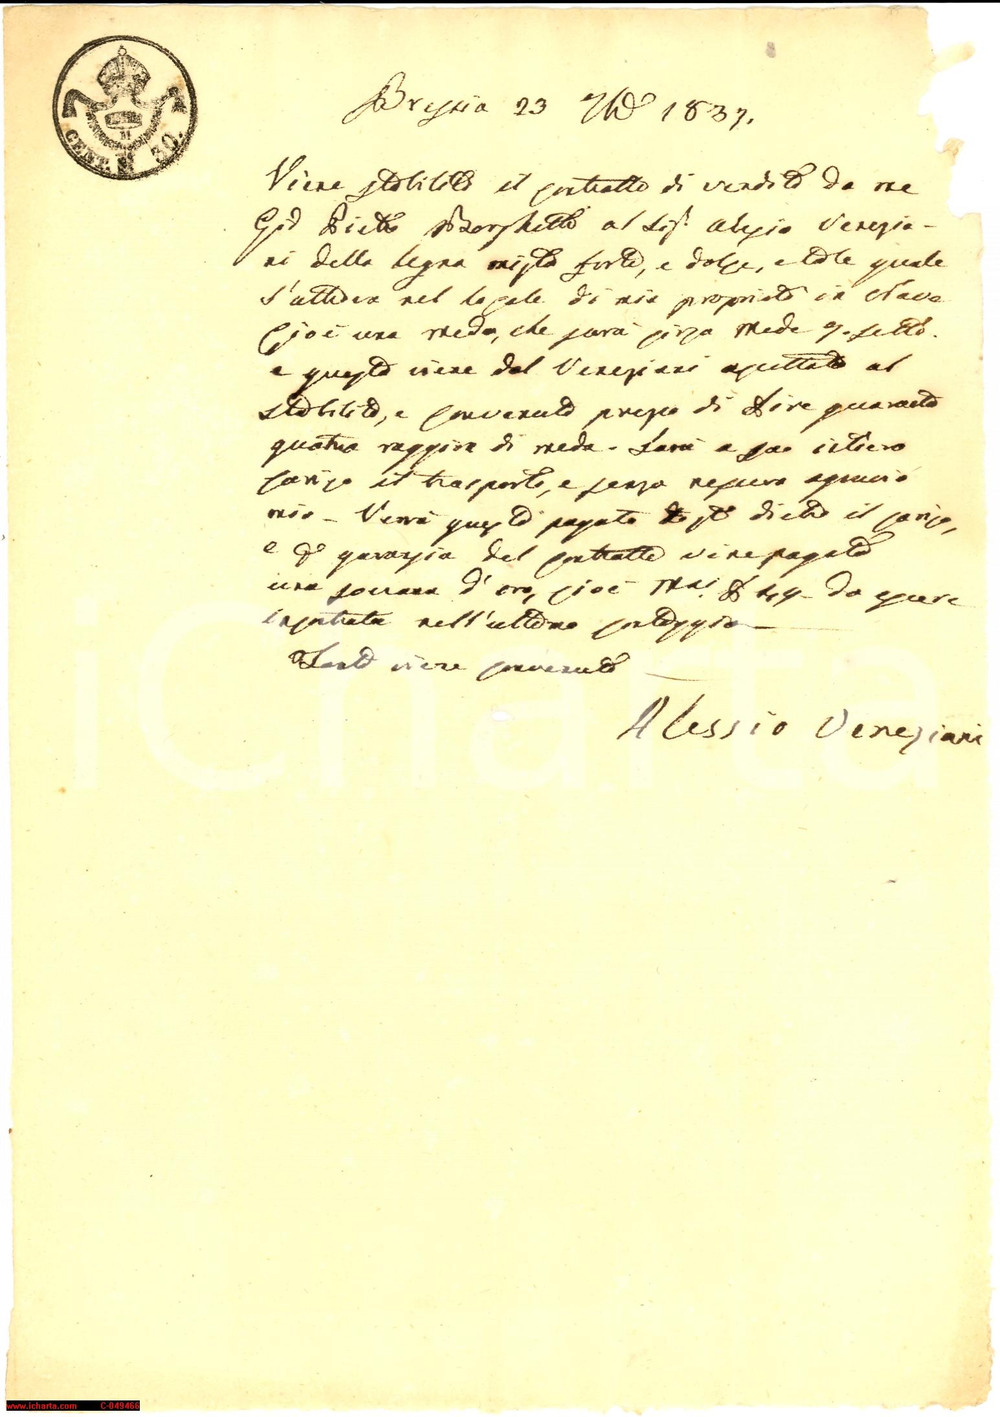 CENT. 30.
Brescia 23 1837.
Viene stabilito il contratto di vendita da me
Pietro Borghetti al Sig.r Alessio Venezia-
ni della legna mista forte, e dolce, e tale quale
nel locale di mia proprietà in
Cioè una meda, che sarà circa mede 7. sette.
e questa viene dal Veneziani accettata al
stabilito, e convenuto prezzo di Lire quaranta
quattro di meda. Sarà a suo intiero
carico il trasporto, e senza nessun aggravio
mio - Verrà questo pagato dietro il carico,
e p garanzia del contratto viene pagato
una sovrana d'oro, cioè 49 - da essere
nell'ultimo conteggio
Tanto viene convenuto
Alessio Veneziani
iCharta
www.icharta.com C-049466